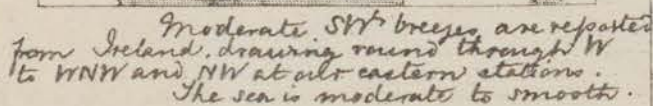 Moderate SWly breezes are reported
from Ireland, drawing round through W
to WNW and NW at our eastern stations.
The sea is moderate to smooth.